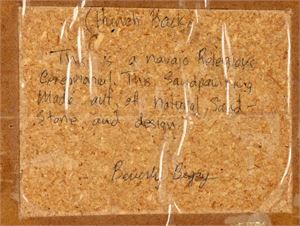 (Hunch Back)
This is a navajo Relegious
Ceremonial. This Sandpainting
Made out of Natural Sand-
Stone and design
Beverly Begay